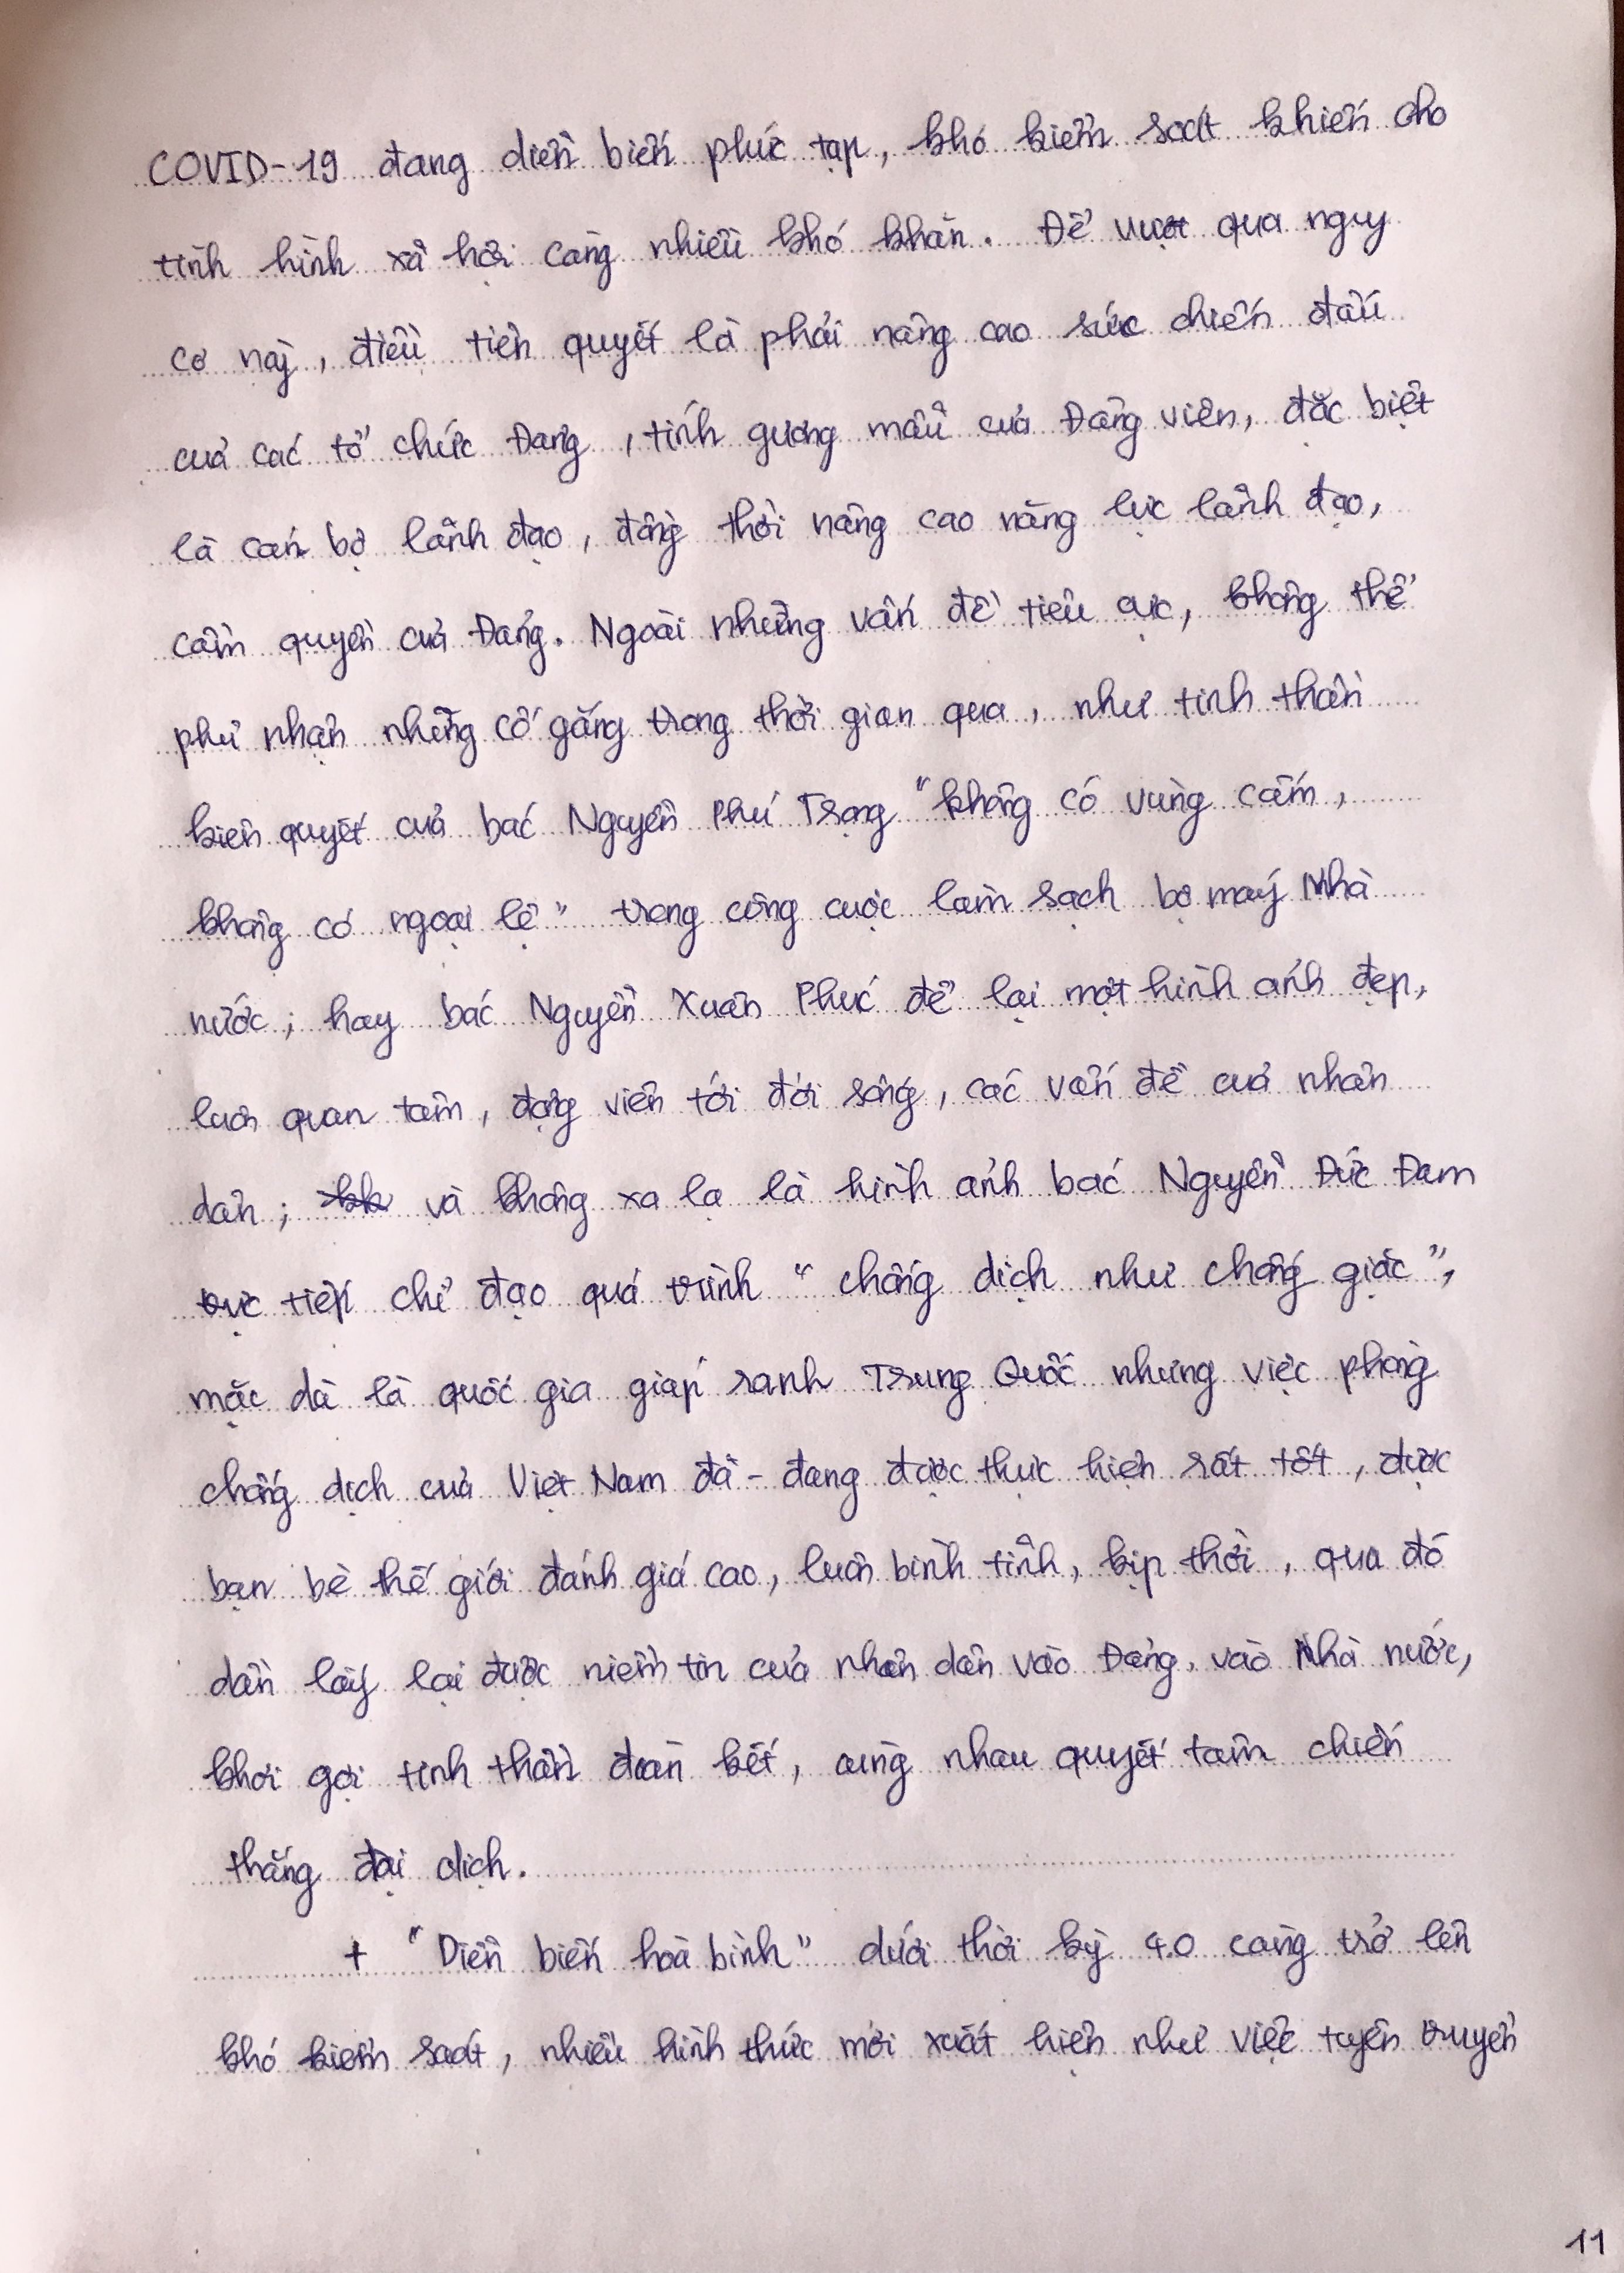 COVID-19 đang diễn biến phức tạp, khó kiểm soát khiến cho
tình hình xã hội càng nhiều khó khăn. Để vượt qua nguy
cơ này, điều tiên quyết là phải nâng cao sức chiến đấu
của các tổ chức Đảng, tính gương mẫu của Đảng viên, đặc biệt
là cán bộ lãnh đạo, đồng thời nâng cao năng lực lãnh đạo,
cầm quyền của Đảng. Ngoài những vấn đề tiêu cực, không thể
phủ nhận những cố gắng trong thời gian qua, như tinh thần
kiên quyết của bác Nguyễn Phú Trọng "không có vùng cấm,
không có ngoại lệ" trong công cuộc làm sạch bộ máy Nhà
nước; hay bác Nguyễn Xuân Phúc để lại một hình ảnh đẹp,
luôn quan tâm, động viên tới đời sống, các vấn đề của nhân
dân; và không xa lạ là hình ảnh bác Nguyễn Đức Đam
trực tiếp chỉ đạo quá trình "chống dịch như chống giặc",
mặc dù là quốc gia giáp ranh Trung Quốc nhưng việc phòng
chống dịch của Việt Nam đã - đang được thực hiện rất tốt, được
bạn bè thế giới đánh giá cao, luôn bình tĩnh, kịp thời, qua đó
dần lấy lại được niềm tin của nhân dân vào Đảng, vào Nhà nước,
khơi gợi tinh thần đoàn kết, cùng nhau quyết tâm chiến
thắng đại dịch.
+ "Diễn biến hoà bình" dưới thời kỳ 4.0 càng trở lên
khó kiểm soát, nhiều hình thức mới xuất hiện như việc tuyên truyền
11